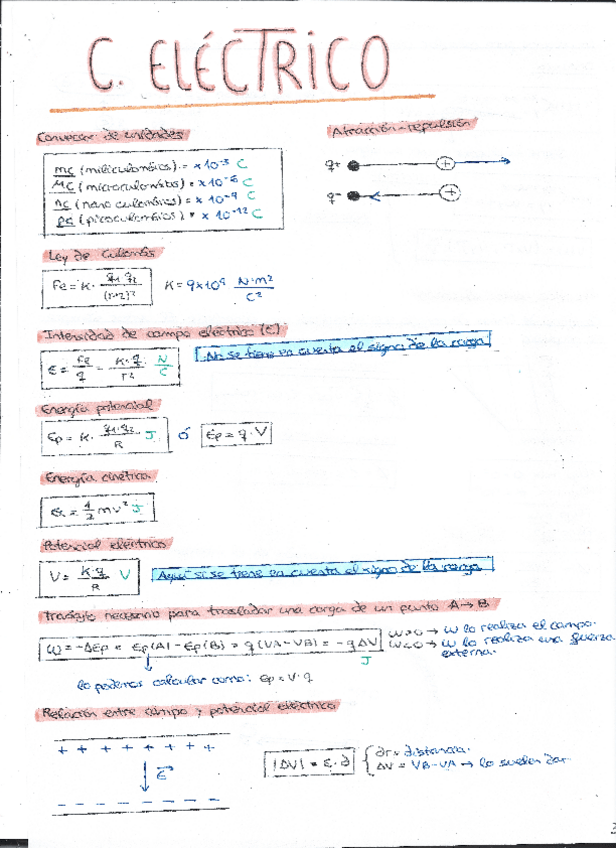 C. ELÉCTRICO
Conversor de unidades
mC (miliculombios) = x10⁻³ C
μC (microculombios) = x10⁻⁶ C
nC (nano culombios) = x10⁻⁹ C
pC (picoculombios) = x 10⁻¹² C
Atracción-repulsión
q+ +
q- +
Ley de Culombs
Fe = K · q1·q2 / (r1·2)² K = 9x10⁹ N·m² / C²
Intensidad de campo eléctrico (E)
E = Fe / q = K·q / r² N / C
No se tiene en cuenta el signo de la carga
Energía potencial
Ep = K · q1·q2 / R J ó Ep = q·V
Energía cinética
Ec = 1/2 mv² J
Potencial eléctrico
V = K·q / R V
Aquí si se tiene en cuenta el signo de la carga
Trabajo necesario para trasladar una carga de un punto A → B
W = -ΔEp = Ep(A) - Ep(B) = q(VA - VB) = -qΔV J
W>0 → W lo realiza el campo.
W<0 → W lo realiza una fuerza externa.
lo podemos calcular como: Ep = V·q
Relación entre campo y potencial eléctrico
+ + + + + + + +
E
|ΔV| = E · d
dr = distancia.
ΔV = VB - VA → lo suelen dar